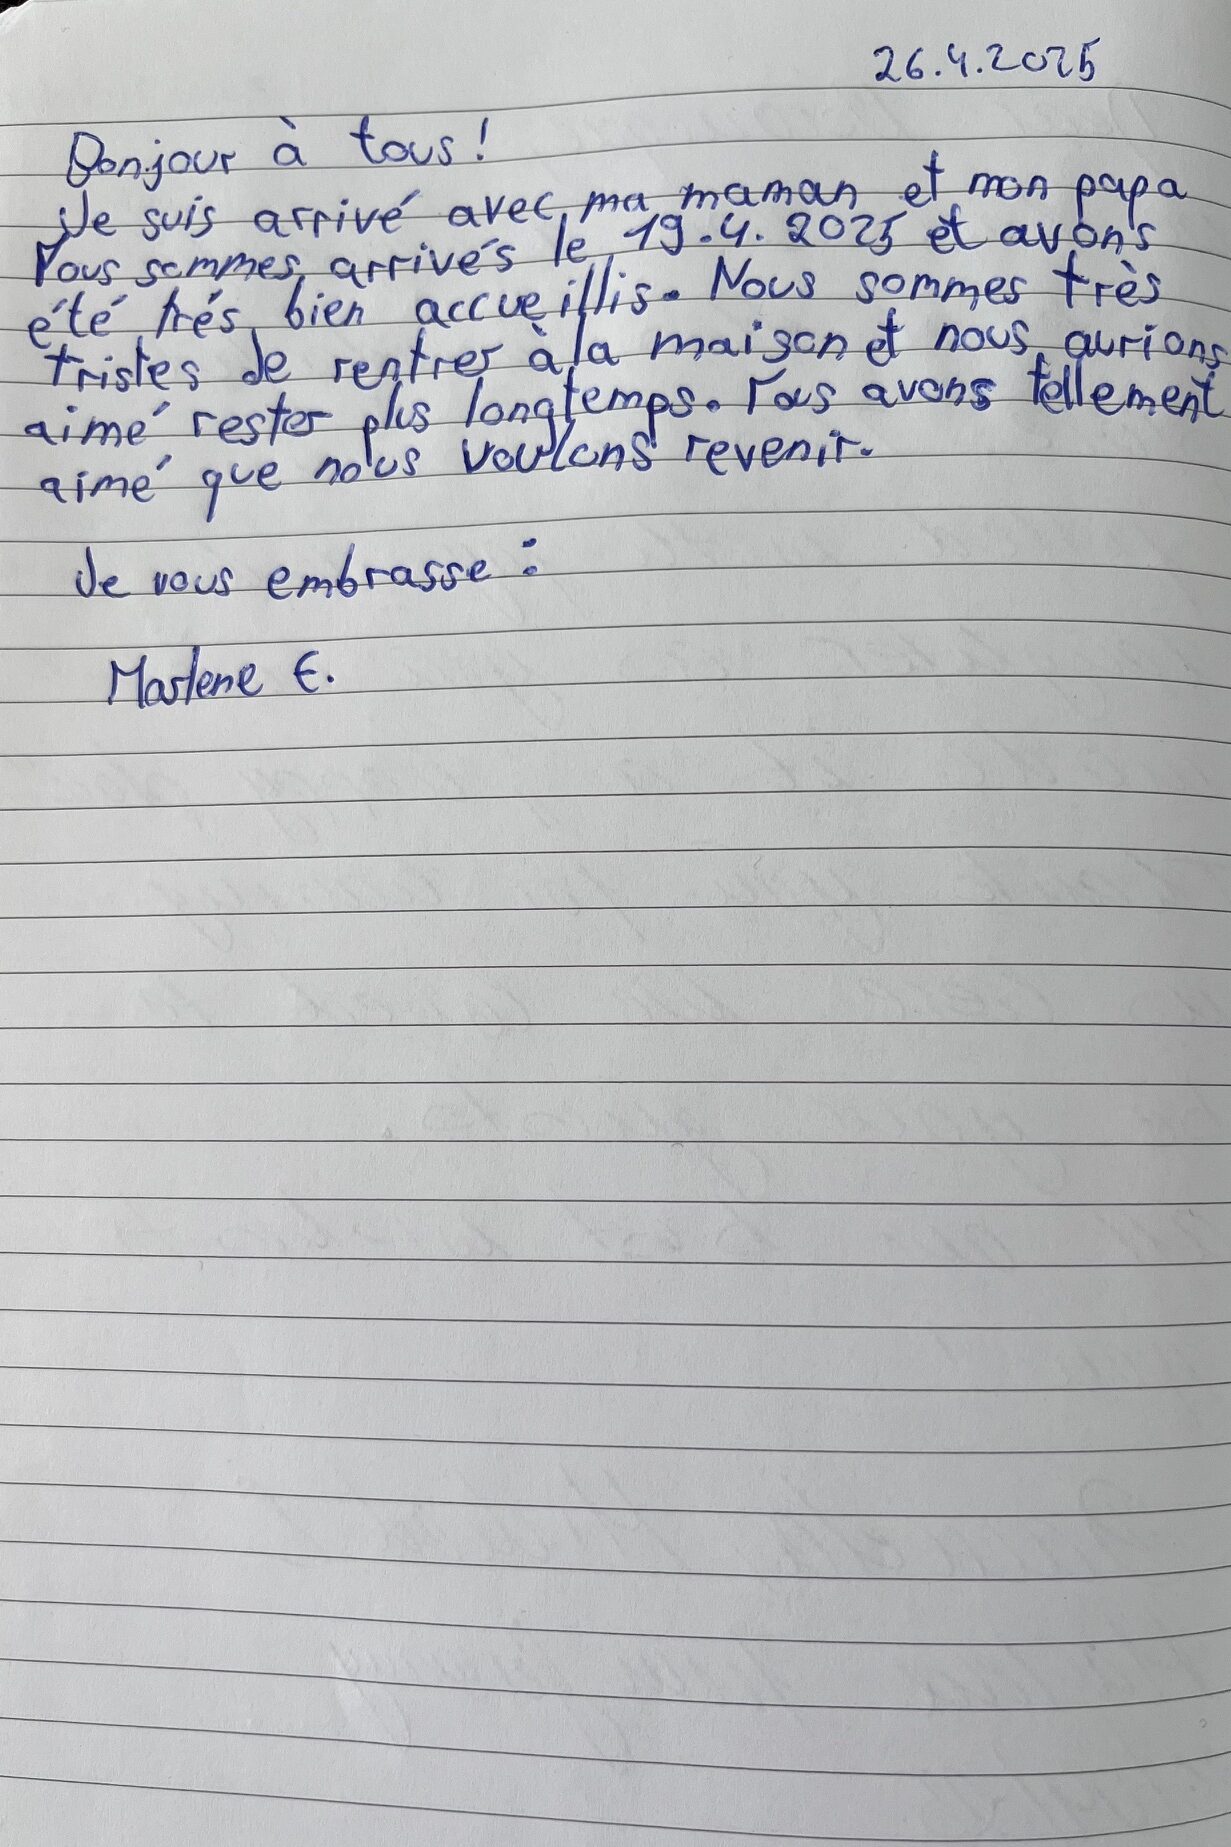 26.4.2025
Bonjour à tous!
Je suis arrivé avec ma maman et mon papa
Nous sommes arrivés le 19.4.2025 et avons
été trés bien accueillis. Nous sommes très
tristes de rentrer à la maison et nous aurions
aimé rester plus longtemps. Nous avons tellement
aimé que nous voulons revenir.
Je vous embrasse:
Marlene E.